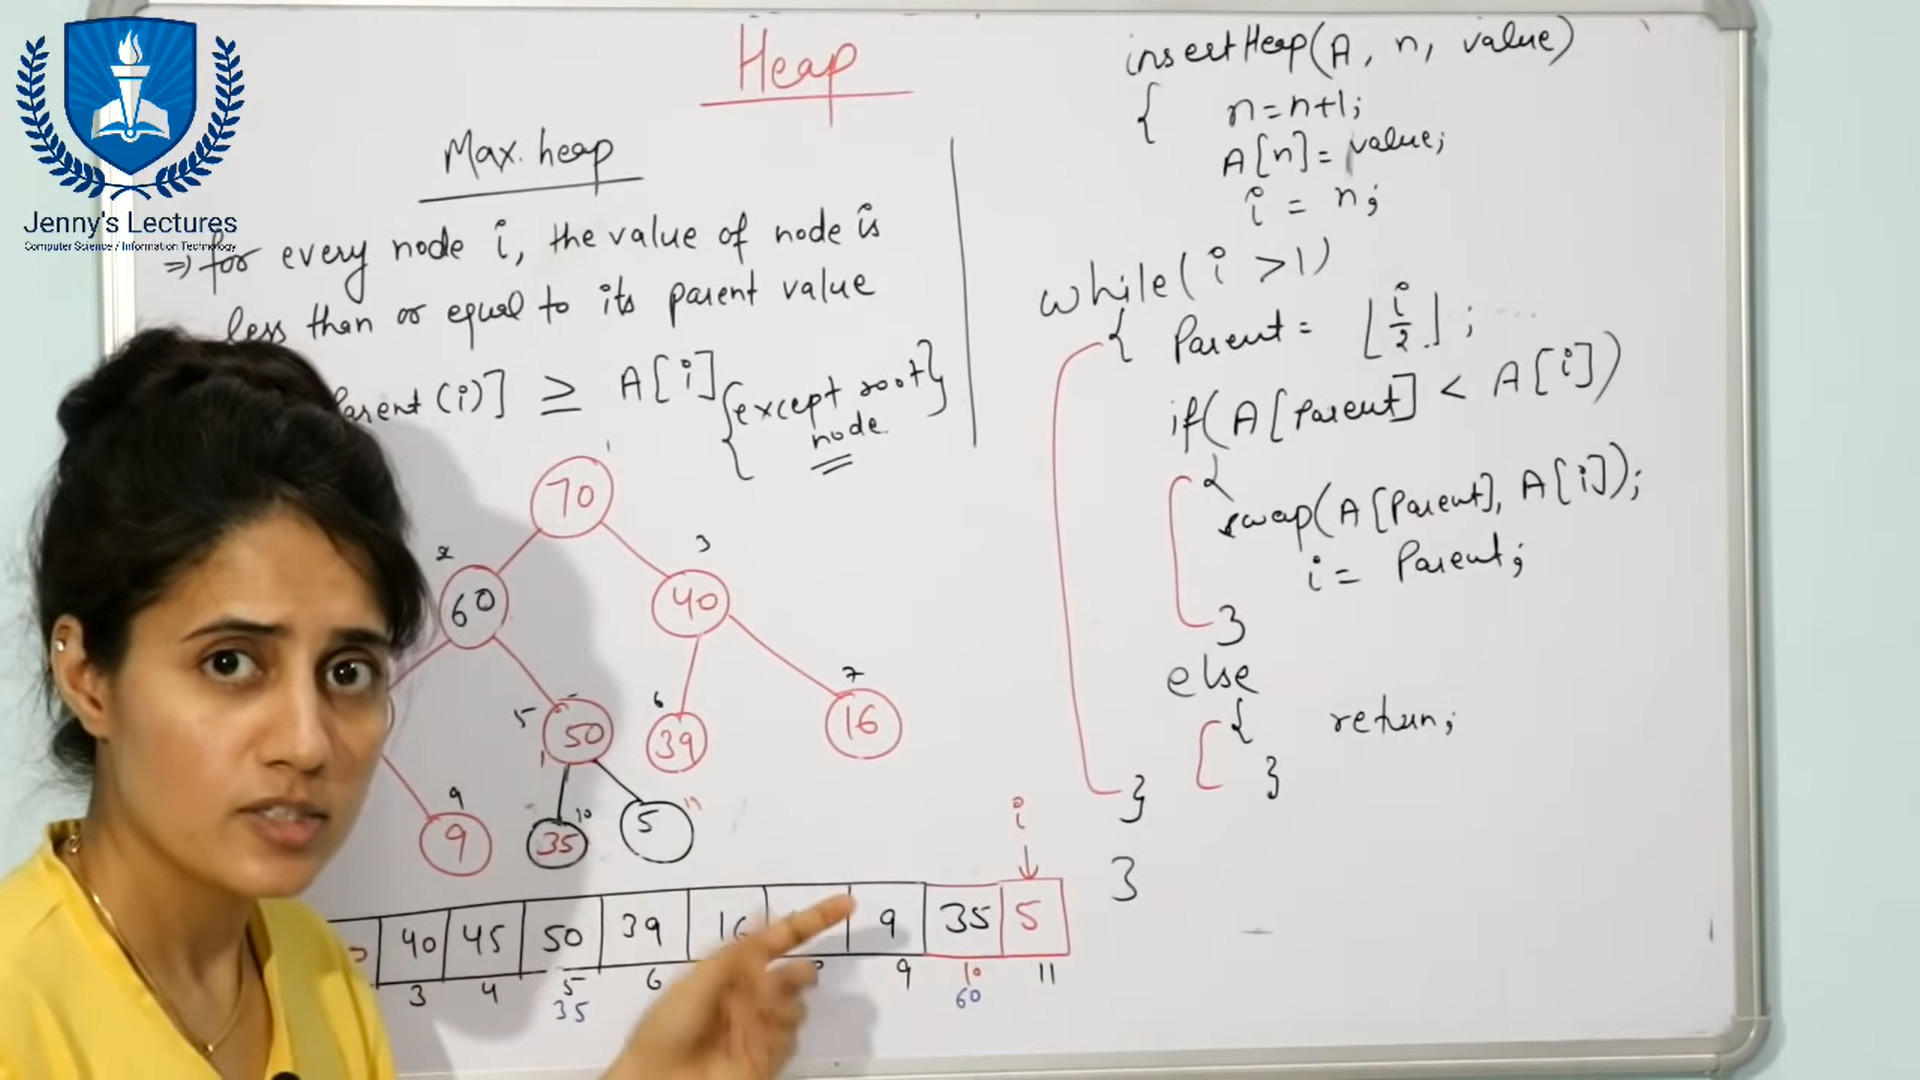 Jenny's Lectures
Computer Science / Information Technology
Heap
Max. heap
⇒ for every node i, the value of node is
less than or equal to its parent value
Parent (i)] ≥ A[i] {except root}
node
1
70
2
3
60
40
5
6
7
50
39
16
9
10
11
9
35
5
i
40 45 50 39 16 9 35 5
3 4 5 6 9 10 11
35 60
insertHeap(A, n, value)
{ n=n+1;
A[n] = value;
i = n;
while(i >1)
{ Parent = ⌊i/2⌋;
if(A[Parent] < A[i])
{
swap(A[Parent], A[i]);
i = Parent;
}
else
{ return;
}
}
}